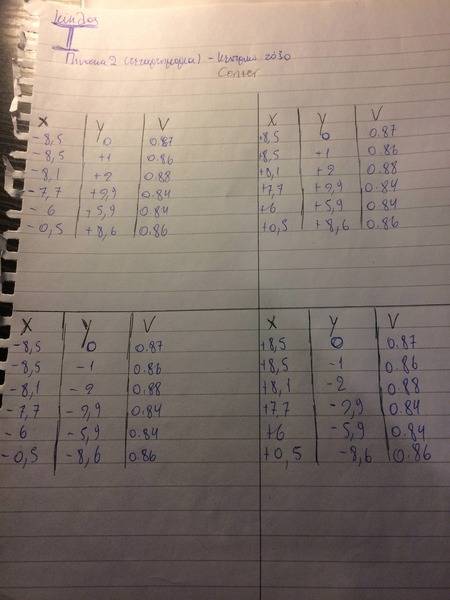 II
X Y V
-8,5 0 0.87
-8,5 +1 0.86
-8,1 +2 0.88
-7,7 +2,9 0.84
-6 +5,9 0.84
-0,5 +8,6 0.86
X Y V
+8,5 0 0.87
+8,5 +1 0.86
+8,1 +2 0.88
+7,7 +2,9 0.84
+6 +5,9 0.84
+0,5 +8,6 0.86
X Y V
-8,5 0 0.87
-8,5 -1 0.86
-8,1 -2 0.88
-7,7 -2,9 0.84
-6 -5,9 0.84
-0,5 -8,6 0.86
X Y V
+8,5 0 0.87
+8,5 -1 0.86
+8,1 -2 0.88
+7,7 -2,9 0.84
+6 -5,9 0.84
+0,5 -8,6 0.86